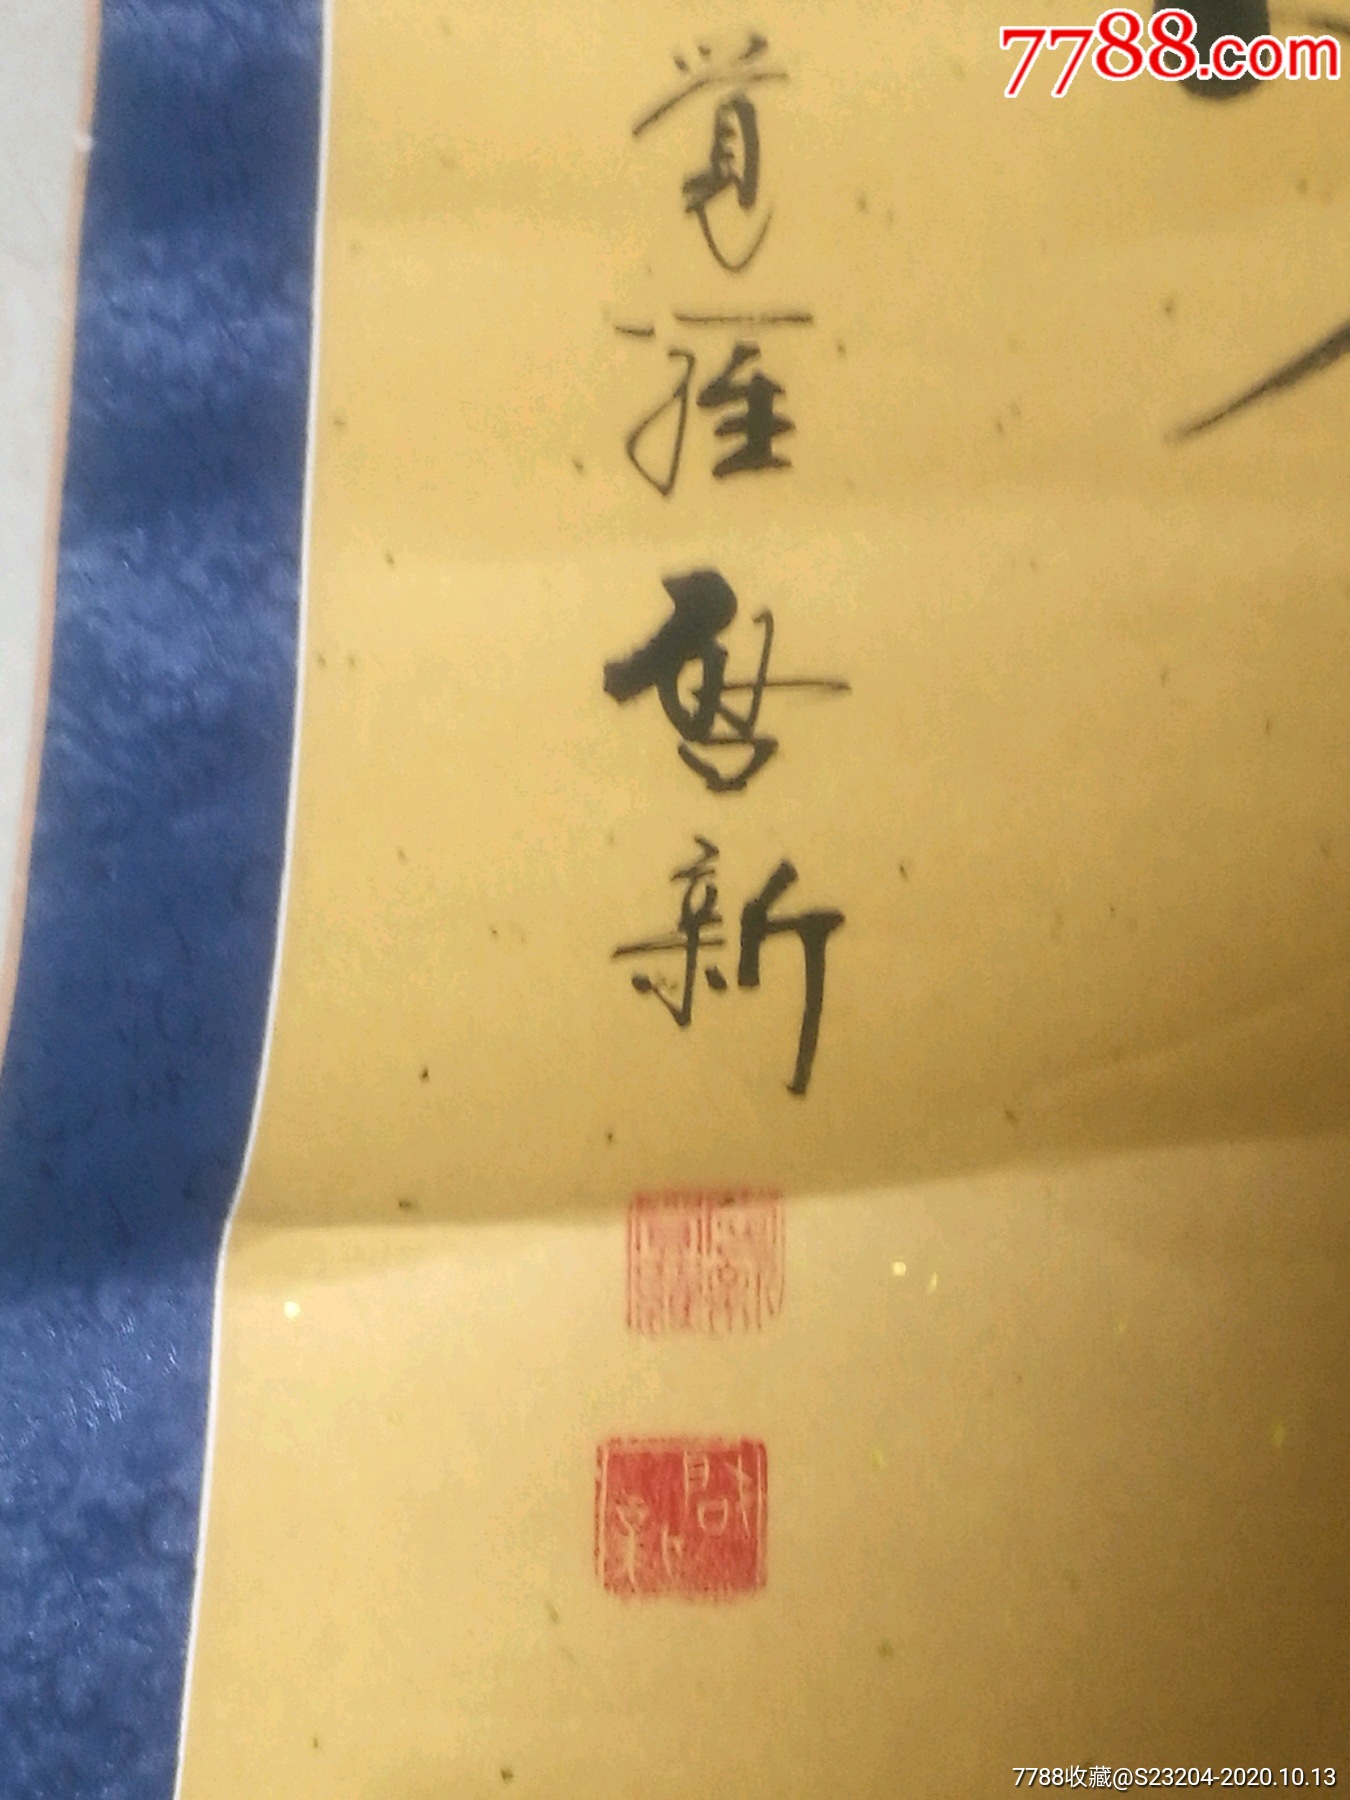 7788.com
觉罗启新
啟新
7788收藏@S23204-2020.10.13